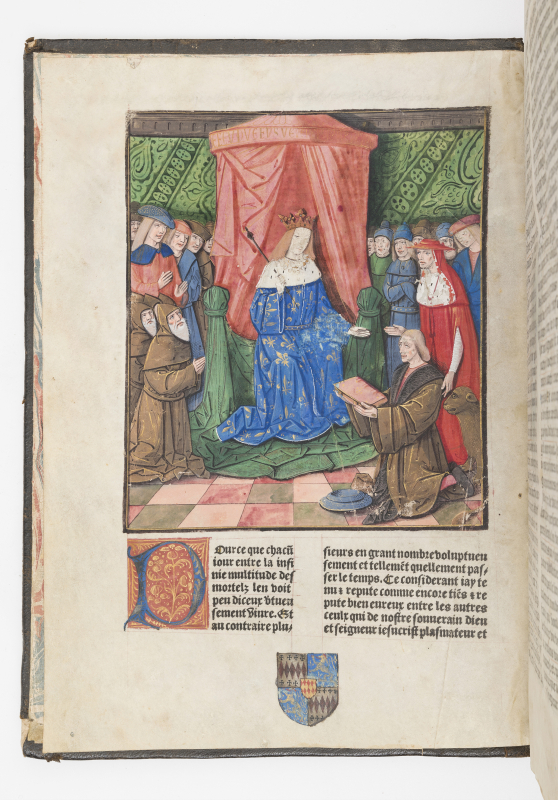 Our ce que chacũ
iour entre la infi
nie multitude des
mortelz len voit
peu diceux v̾tueu
sement viure. Et
au contraire plu-
sieurs en grant nombre voluptueu
sement et tellemẽt quellement pas-
ser le temps. Ce considerant iay te
nu ⁊ repute comme encore tiẽs ⁊ re
pute bien eureux entre les autres
ceulx qui de nostre souuerain dieu
et seigneur iesucrist plasmateur et